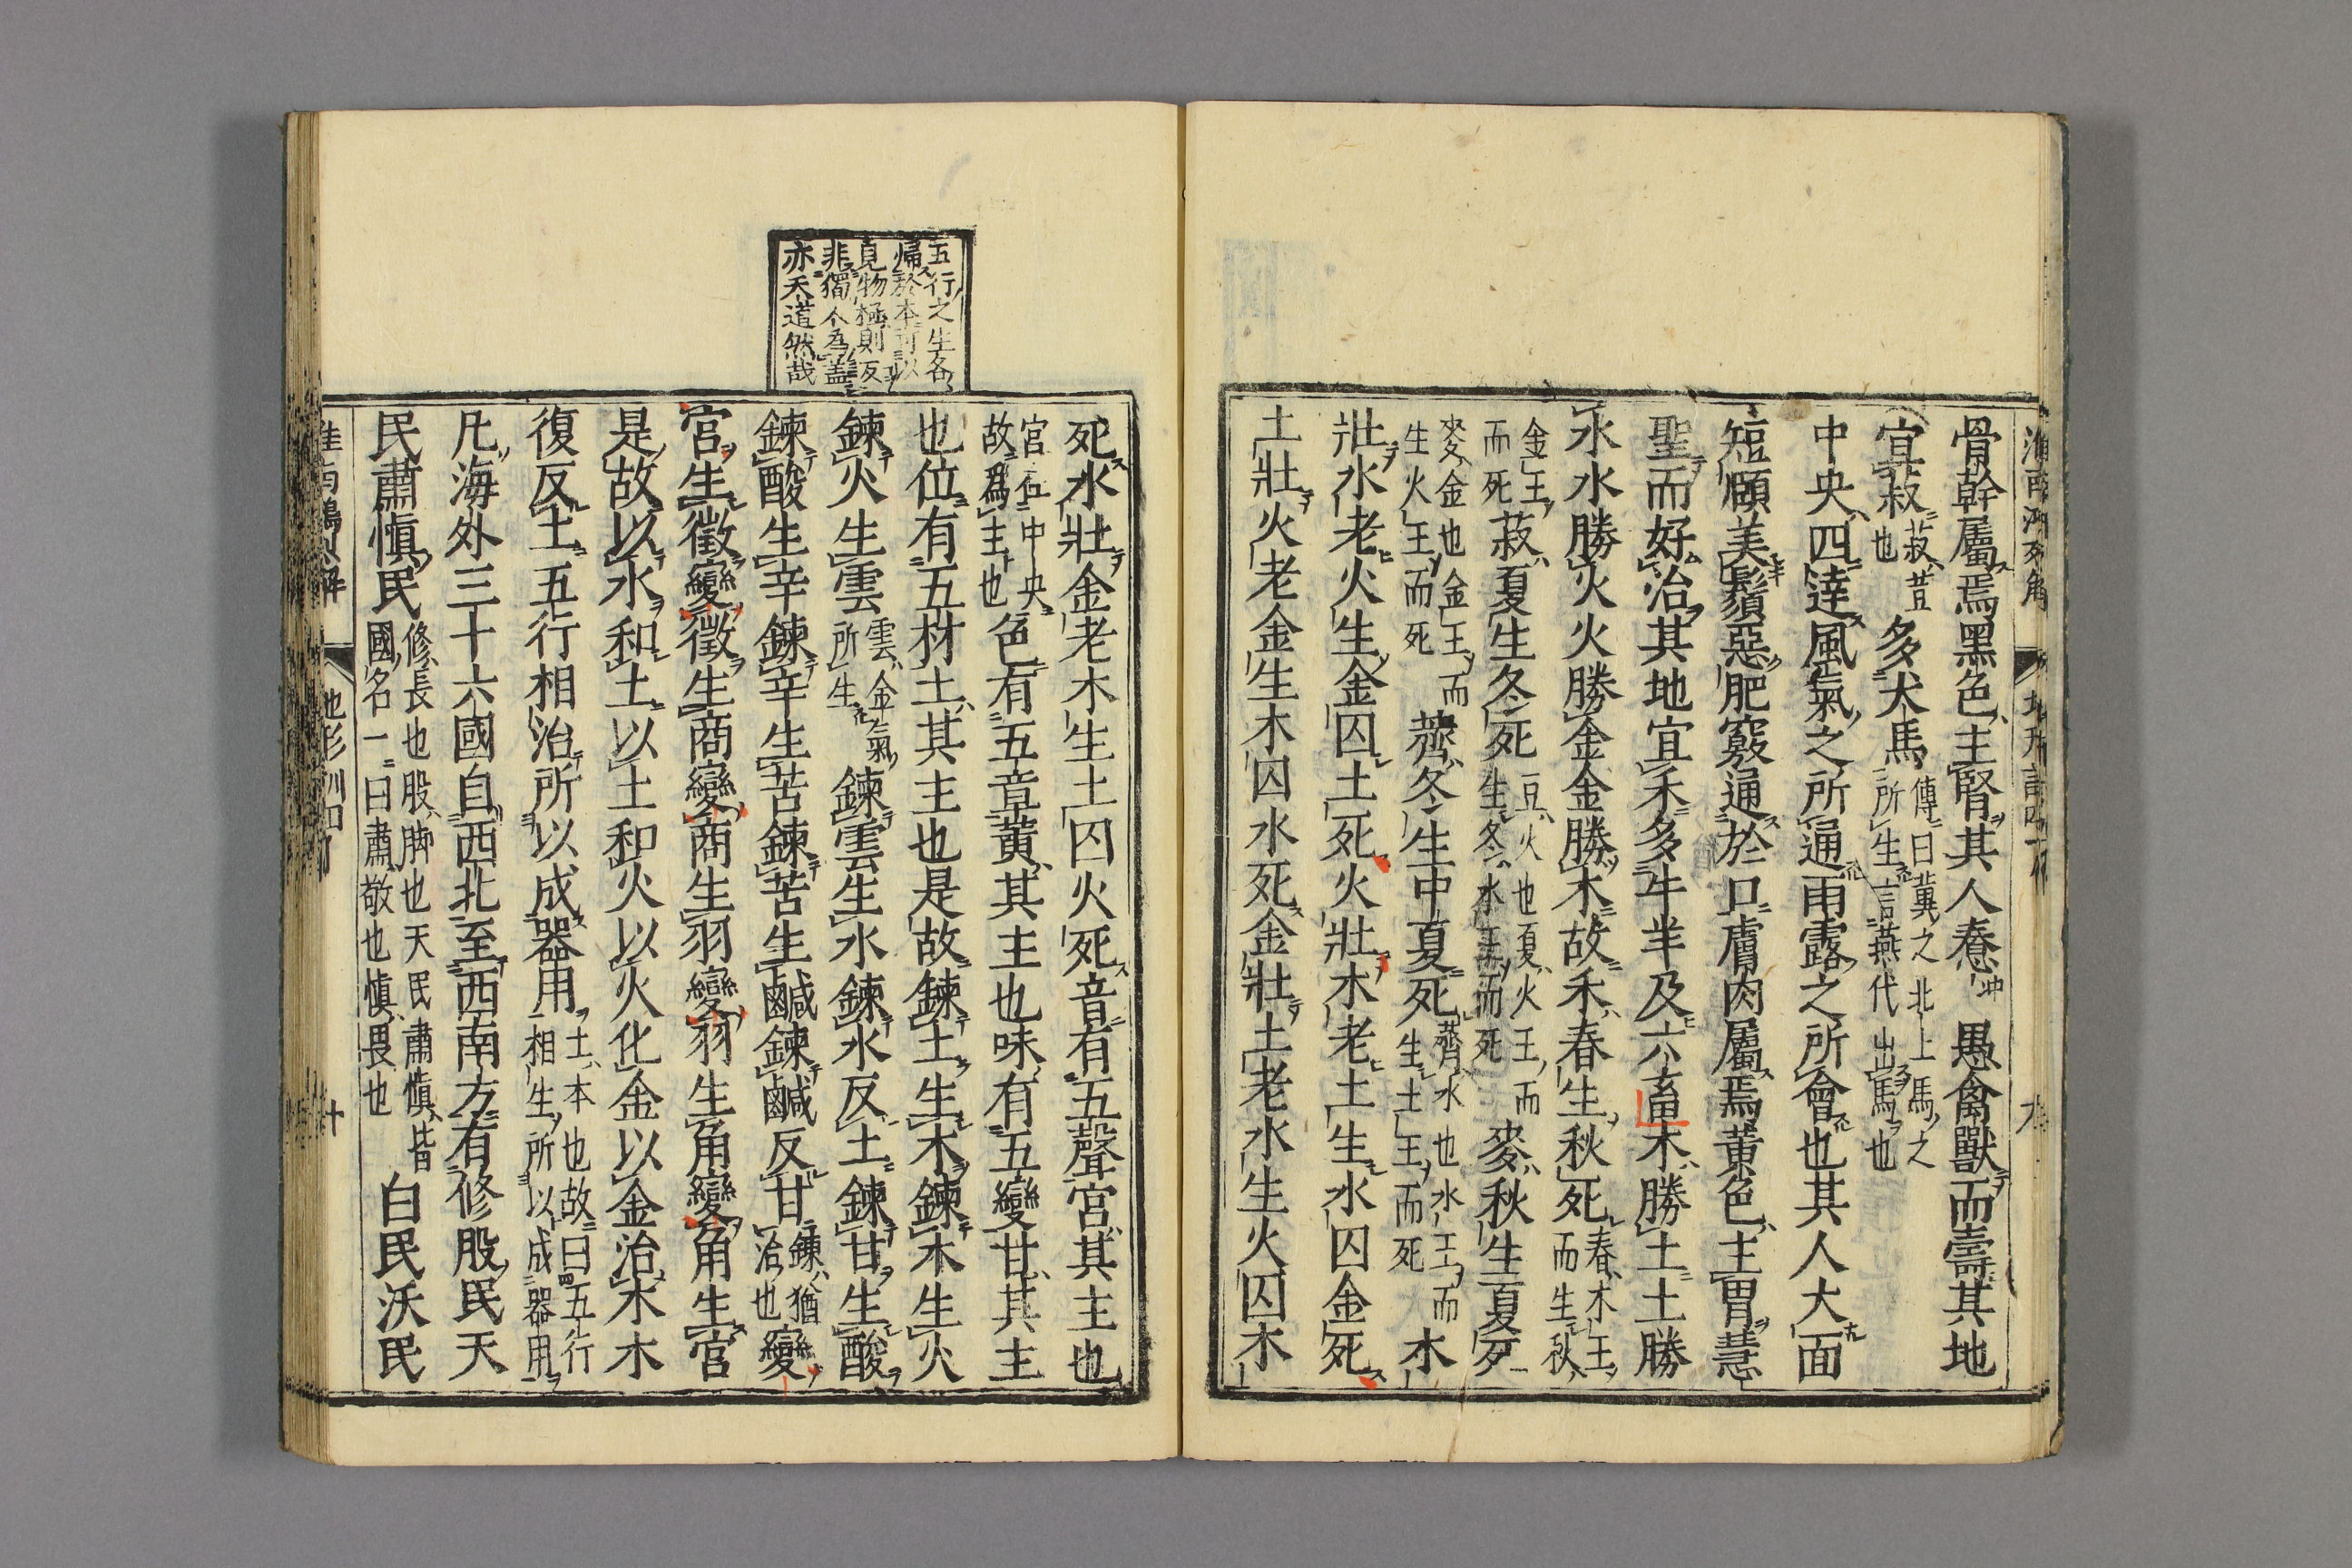 骨幹屬焉黑色主腎其人惷愚禽獸而壽其地
宜菽菽荳也多犬馬傳曰冀之北土馬之所生言燕代出馬也
中央四達風氣之所通雨露之所會也其人大面
短頤美鬚惡肥竅通於口膚肉屬焉黃色主胃慧
聖而好治其地宜禾多牛羊及六畜木勝土土勝
水水勝火火勝金金勝木故禾春生秋死春木王而生秋
金王而死菽夏生冬死豆火也夏火王而生冬水王而死麥秋生夏死
麥金也金王而生火王而死薺冬生中夏死薺水也水王而生土王而死木
壯水老火生金囚土死火壯木老土生水囚金死
土壯火老金生木囚水死金壯土老水生火囚木
死水壯金老木生土囚火死音有五聲宮其主也
宮在中央故為主也色有五章黃其主也味有五變甘其主
也位有五材土其主也是故鍊土生木鍊木生火
鍊火生雲雲金氣所生鍊雲生水鍊水反土鍊甘生酸
鍊酸生辛鍊辛生苦鍊苦生鹹鍊鹹反甘鍊猶治也變
宮生徵變徵生商變商生羽變羽生角變角生宮
是故以水和土以土和火以火化金以金治木木
復反土五行相治所以成器用土本也故曰五行相生所以成器用
凡海外三十六國自西北至西南方有修股民天
民肅慎民修長也股脚也天民肅慎皆國名一曰肅敬也慎畏也白民沃民
五行之生各
歸於本可以
見物極則反
非獨人為蓋
亦天道然哉